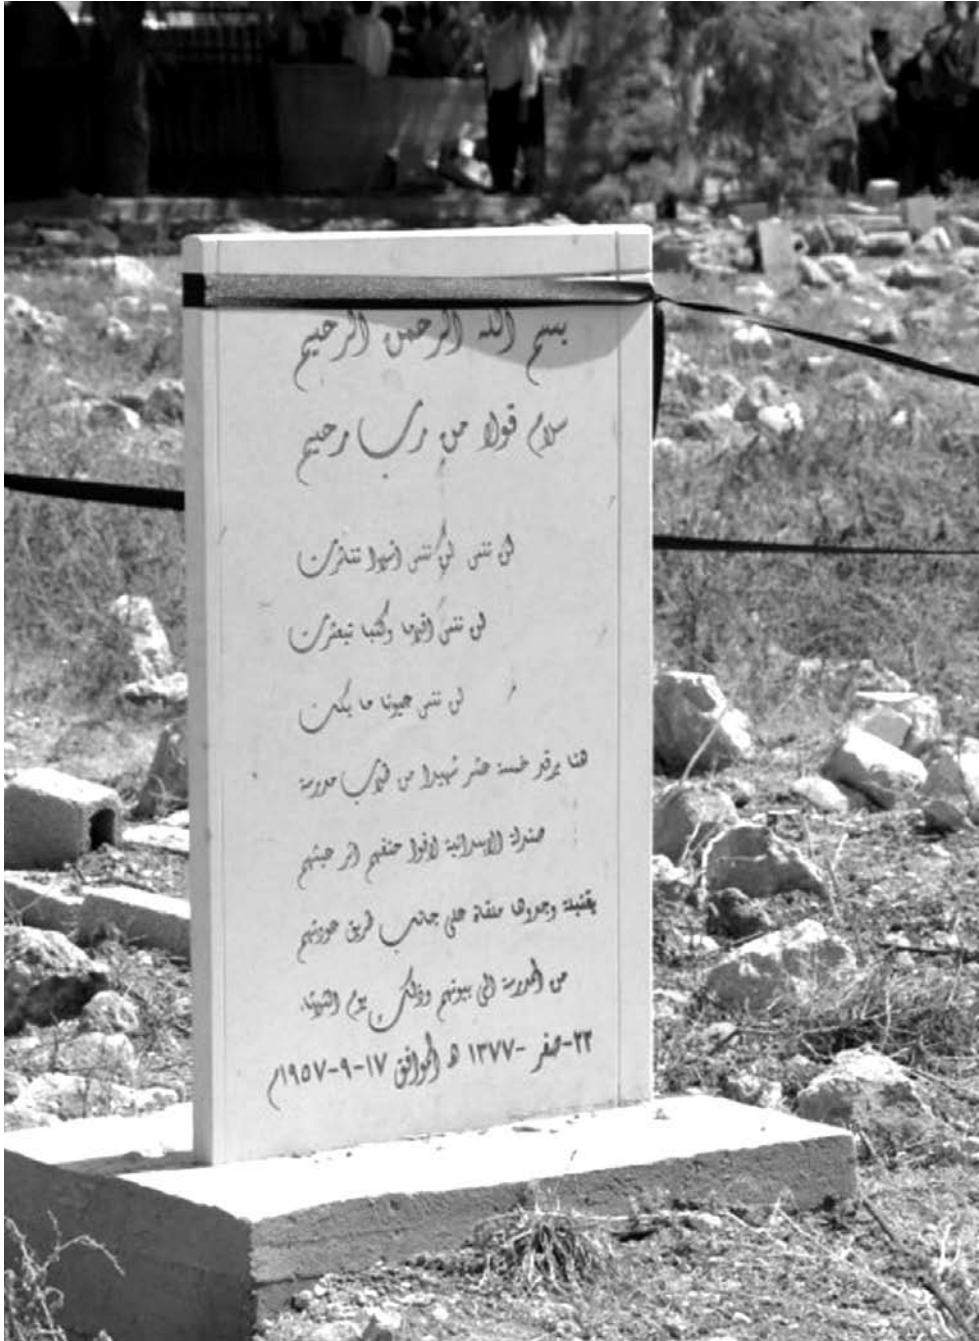 بسم الله الرحمن الرحيم
سلام قولا من رب رحيم
لن ننس لن ننس اسودا تناثرت
لن ننس اقلاما وكتبا تبعثرت
لن ننس عيونا ما بكت
هنا يرقد خمسة عشر شهيدا من طلاب مدرسة
صندلة الابتدائية لاقوا حتفهم اثر عبثهم
بقنبلة وجدوها ملقاة على جانب طريق عودتهم
من المدرسة الى بيوتهم وذلك يوم الثلاثاء
٢٢-صفر-١٣٧٧ ه الموافق ١٧-٩-١٩٥٧م